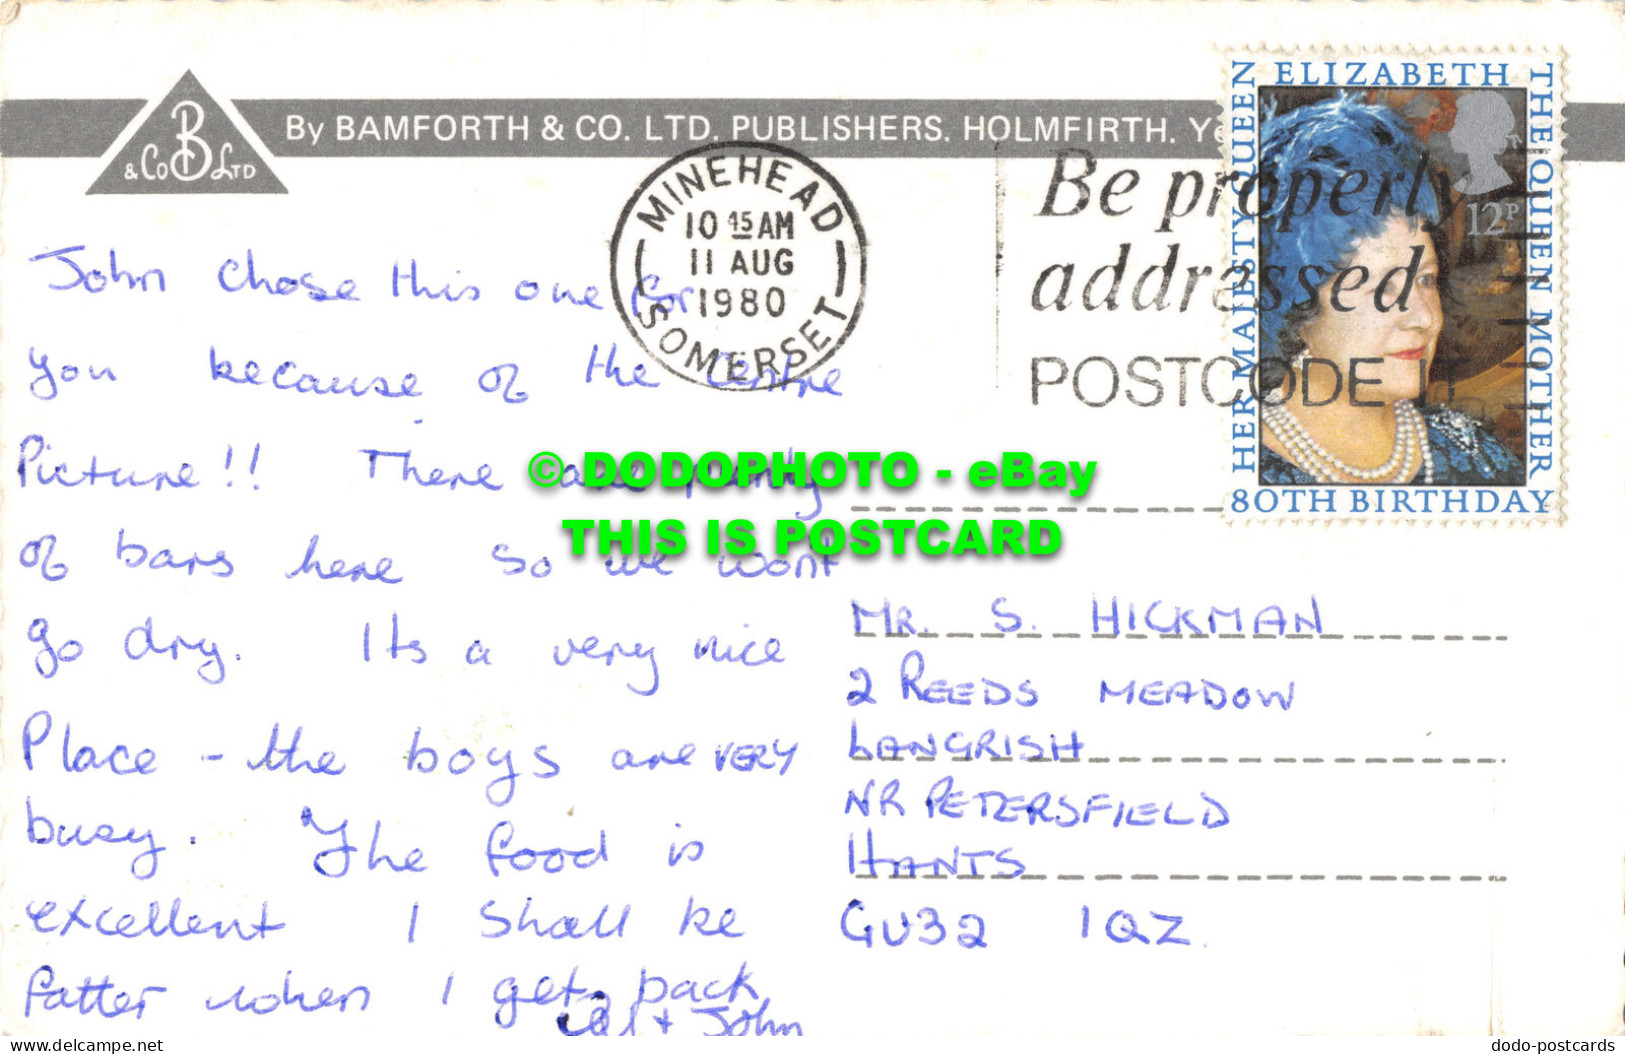 By BAMFORTH & CO. LTD. PUBLISHERS. HOLMFIRTH.
B
& Co LTD
MINEHEAD
10 45 AM
11 AUG
1980
SOMERSET
Be properly
addressed
POSTCODE IT
HER MAJESTY QUEEN ELIZABETH THE QUEEN MOTHER
12P
80TH BIRTHDAY
John chose this one for
you because of the centre
Picture!! There are plenty
of bars here so we wont
go dry. Its a very nice
Place - the boys are VERY
busy. The food is
excellent I shall be
fatter when I get back
Cal + John
© DODOPHOTO - eBay
THIS IS POSTCARD
MR. S. HICKMAN
2 REEDS MEADOW
LANGRISH
NR PETERSFIELD
HANTS
GU32 1QZ.
www.delcampe.net
dodo-postcards